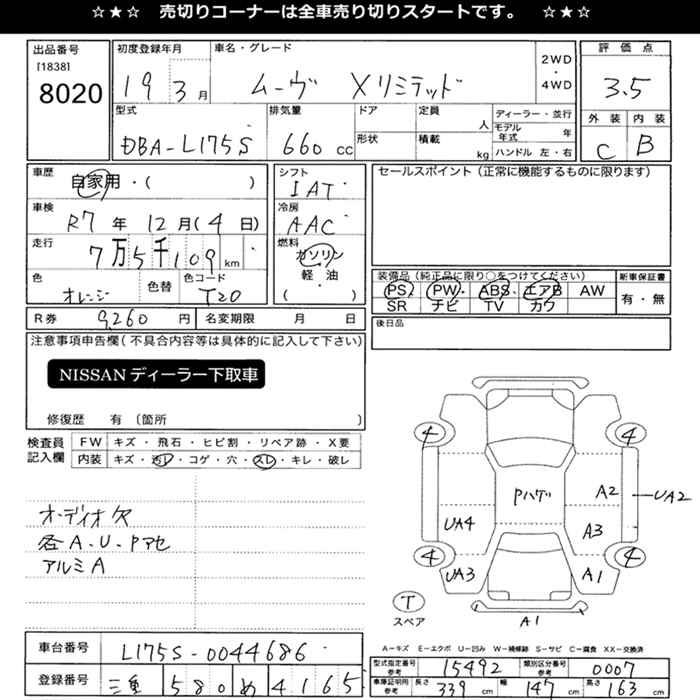 ☆★☆ 売切りコーナーは全車売り切りスタートです。 ☆★☆
出品番号
[1838]
8020
初度登録年月
19 3月
車名・グレード
ムーヴ Xリミテッド
2WD
・
4WD
評価点
3.5
外装 内装
C B
型式
DBA-L175S
排気量
660 cc
ドア
形状
定員
人
積載
kg
ディーラー・並行
モデル年式 年
ハンドル 左・右
車歴
自家用・( )
車検
R7年 12月(4日)
走行
7万5千109km
色
オレンジ
色替
色コード
T20
シフト
IAT
冷房
AAC
燃料
ガソリン
軽・油
( )
セールスポイント(正常に機能するものに限ります)
装備品(純正品に限り○をつけてください)
PS PW ABS エアB AW
SR チビ TV カワ
新車保証書
有・無
R券 9,260円
名変期限 月 日
後日品
注意事項申告欄(不具合内容等は具体的に記入して下さい)
NISSANディーラー下取車
修復歴 有〔箇所 〕
検査員
記入欄
FW キズ・飛石・ヒビ割・リペア跡・X要
内装 キズ・汚レ・コゲ・穴・スレ・キレ・破レ
オーディオ欠
各A.U.Pアセ
アルミA
4 4
Pハゲ
A2
UA2
UA4
A3
4 4
UA3
A1
T
スペア
A1
A=キズ E=エクボ U=凹み W=補修跡 S=サビ C=腐食 XX=交換済
車台番号
L175S-0044686
登録番号
三重 580 め 4165
型式指定番号
参考
15492
類別区分番号
参考
0007
車庫証明用
参考
長さ 339cm
幅 147cm
高さ 163cm